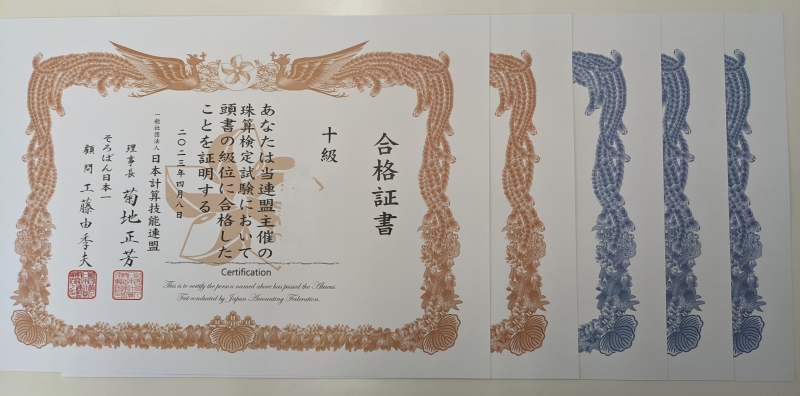 合格証書
十級
あなたは当連盟主催の
珠算検定試験において
頭書の級位に合格した
ことを証明する
二〇二三年四月八日
一般社団法人 日本計算技能連盟
理事長 菊地正芳
そろばん日本一
顧問 工藤由季夫
Certification
This is to certify the person named above has passed the Abacus
Test conducted by Japan Amounting Federation.